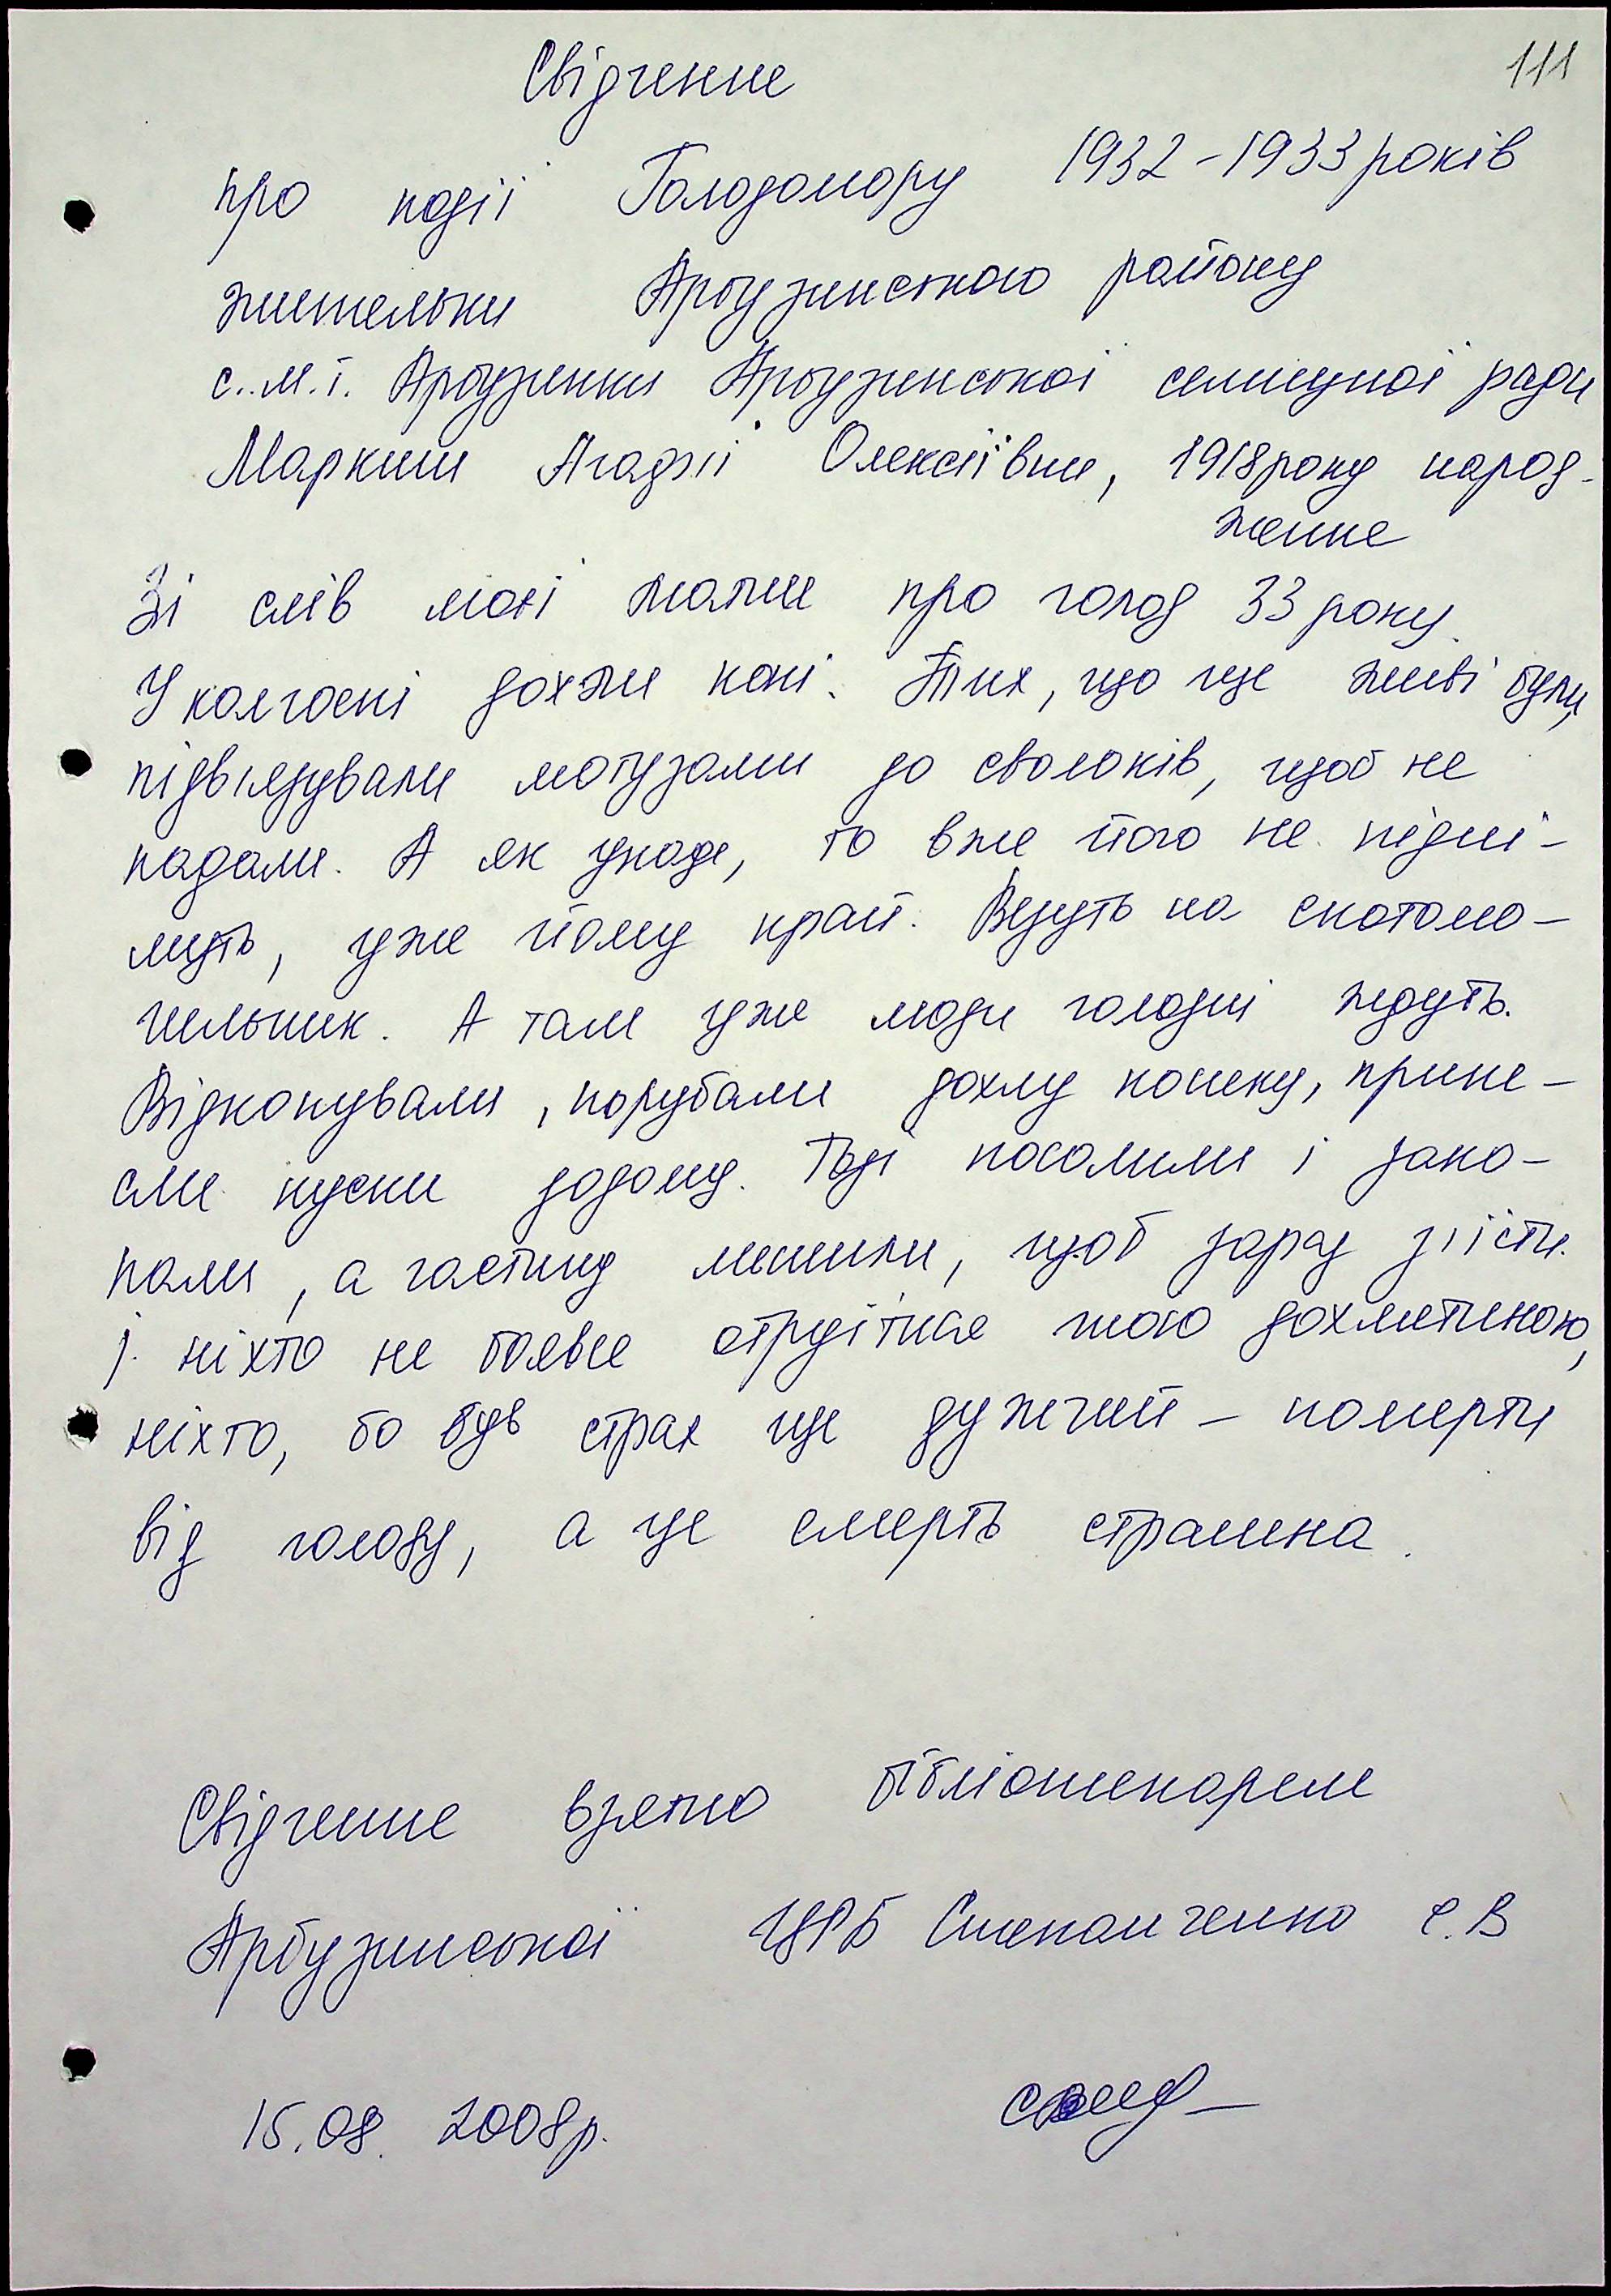 111
Свідчення
про події Голодомору 1932-1933 років
жительки Арбузинського району
с.м.т. Арбузинки Арбузинської селищної ради
Маркиш Агафії Олексіївни, 1918 року народ-
ження
Зі слів моєї мами про голод 33 року.
У колгоспі дохли коні. Тих, що ще живі були,
підв'язували мотузами до сволоків, щоб не
падали. А як упаде, то вже його не підні-
муть, уже йому край. Везуть на скотомо-
гильник. А там уже люди голодні ждуть.
Відкопували, порубали дохлу конеку, прине-
сли куски додому. Тоді посолили і зако-
пали, а частину лишили, щоб зараз з'їсти.
І ніхто не боявся отруїтися тою дохлятиною,
ніхто, бо був страх ще дужчий - померти
від голоду, а це смерть страшна.
Свідчення взято бібліотекарем
Арбузинської ЦРБ Степанченко Є.В
15.08. 2008р.